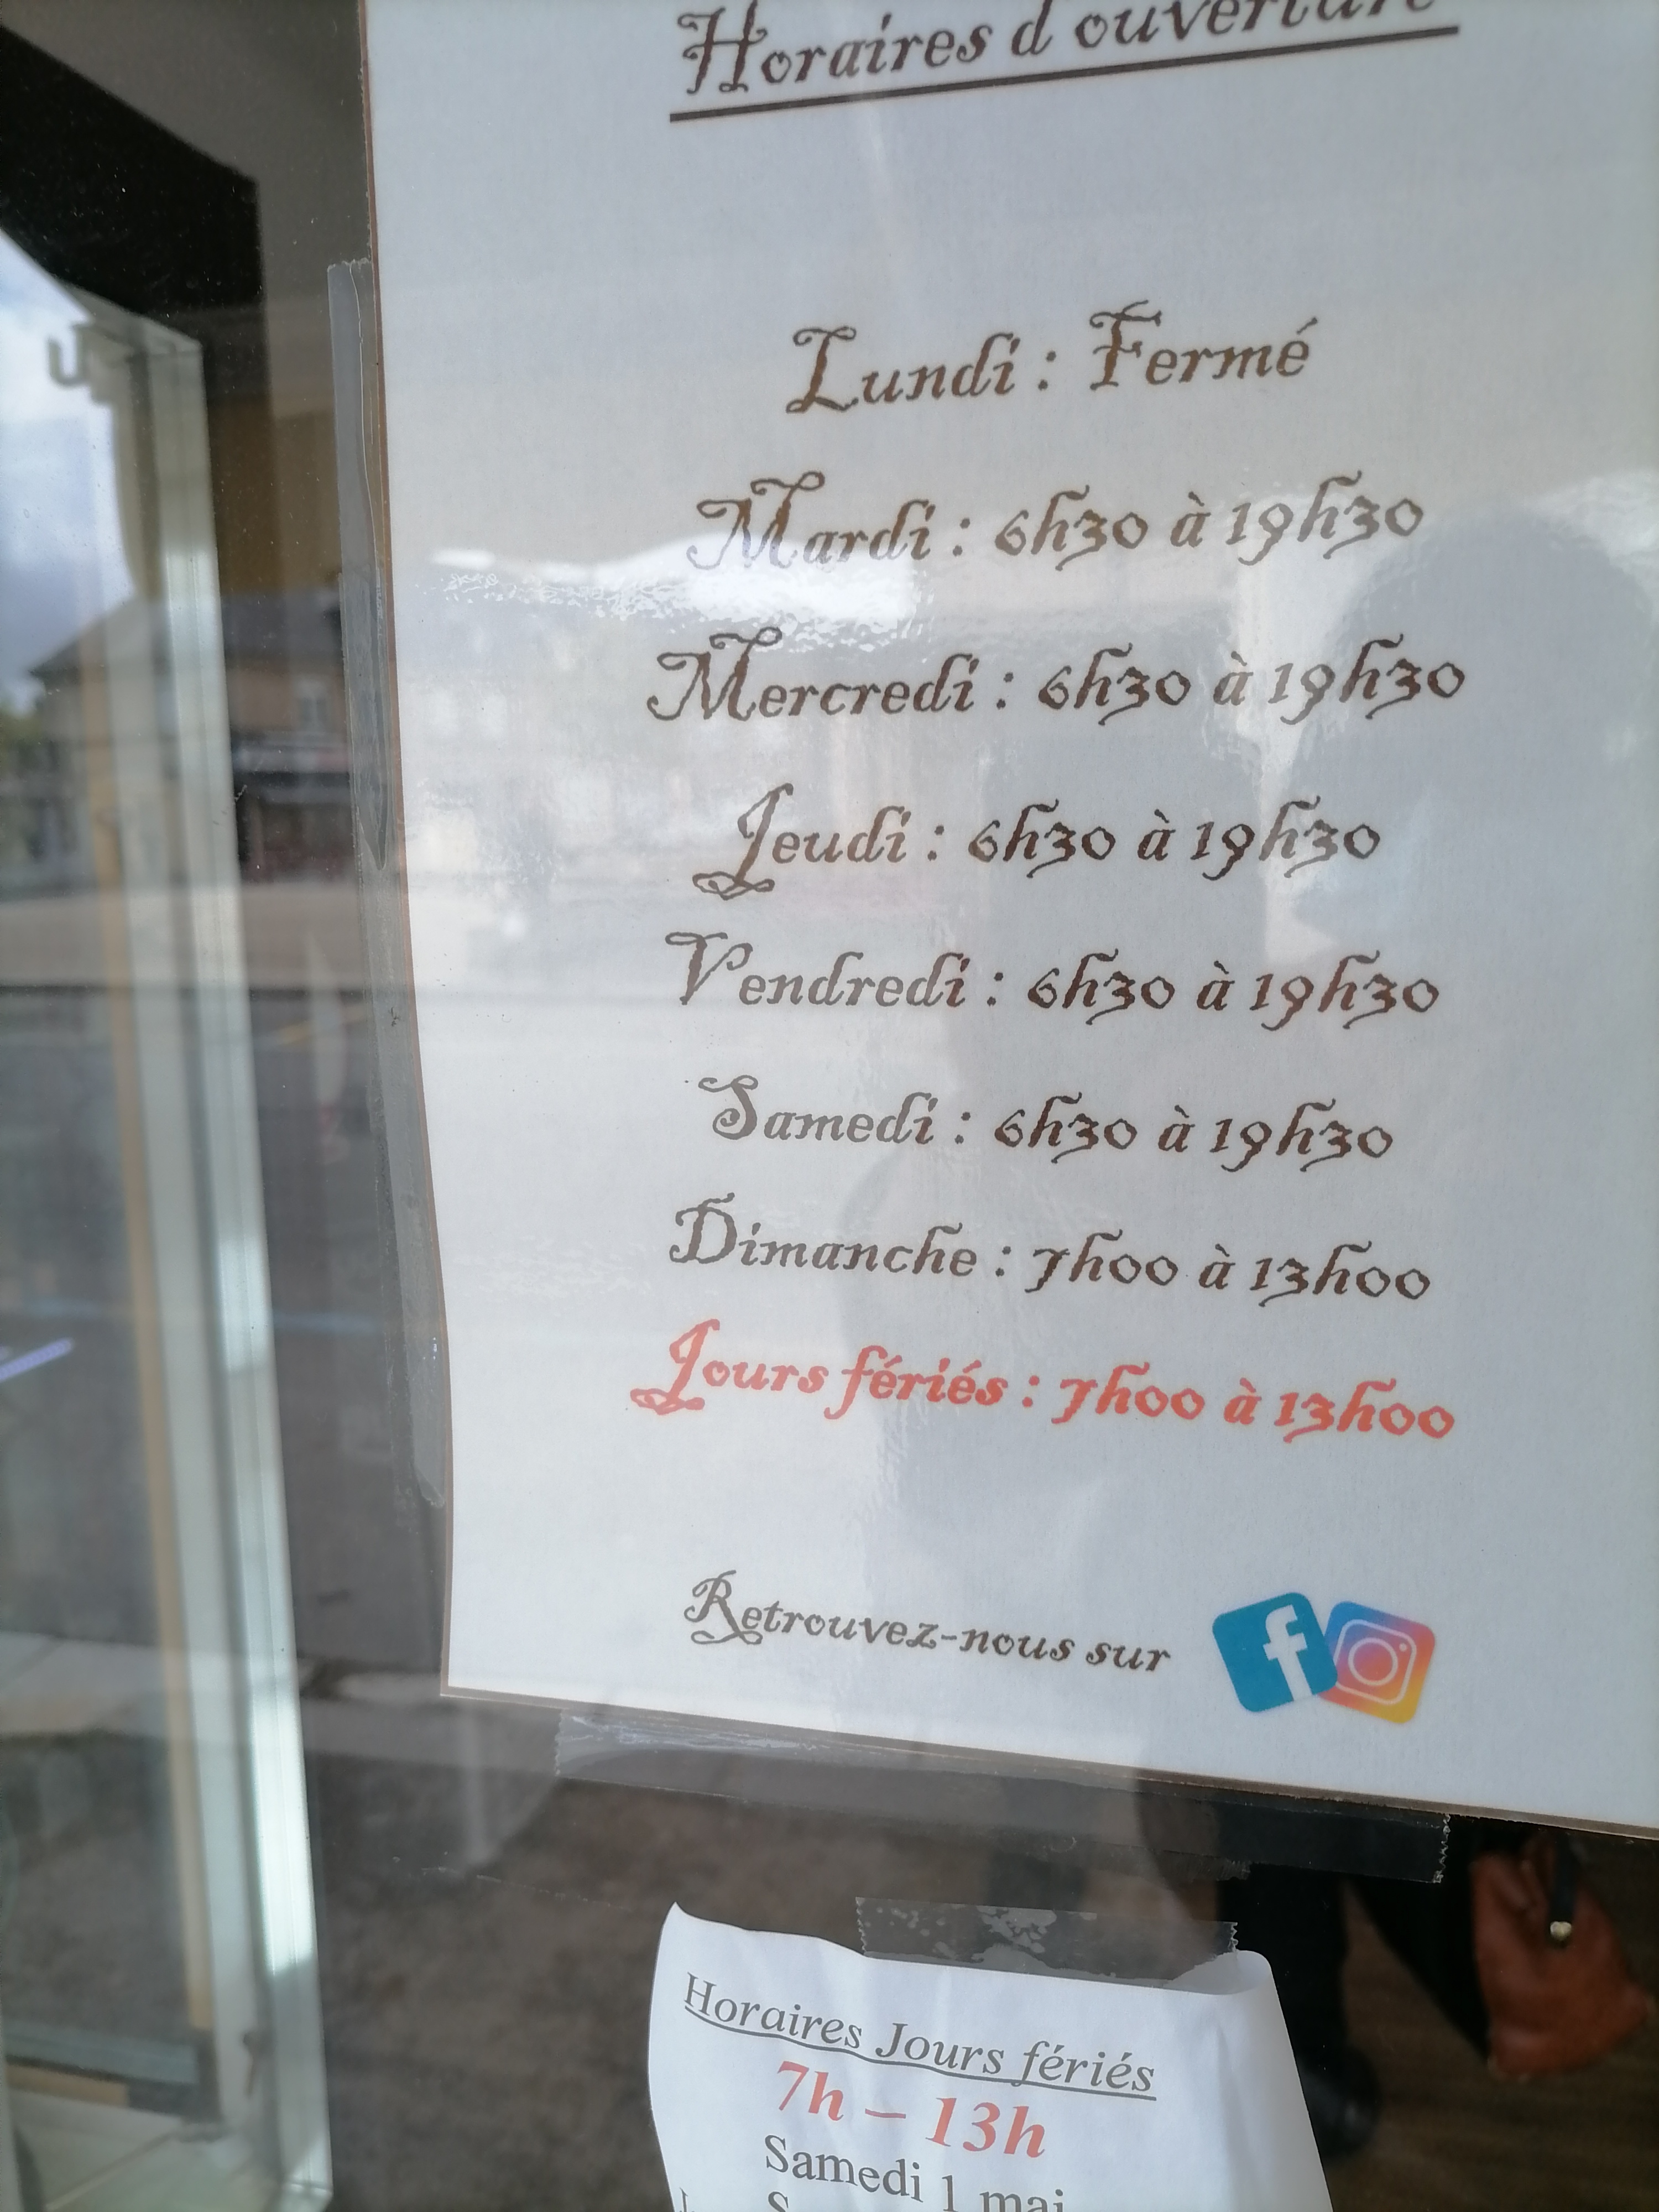 Horaires d'ouverture
Lundi : Fermé
Mardi : 6h30 à 19h30
Mercredi : 6h30 à 19h30
Jeudi : 6h30 à 19h30
Vendredi : 6h30 à 19h30
Samedi : 6h30 à 19h30
Dimanche : 7h00 à 13h00
Jours fériés : 7h00 à 13h00
Retrouvez-nous sur
Horaires Jours fériés
7h – 13h
Samedi 1 mai